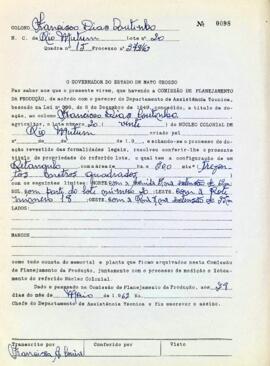 COLONO Francisco Dias Coutinho Nº 0098
N. C. de Rio Mutum Lote nº 20
Quadra nº 15 Processo nº
O GOVERNADOR DO ESTADO DE MATO GROSSO
Faz saber aos que o presente virem, que havendo a COMISSÃO DE PLANEJAMENTO
DA PRODUÇÃO, de acordo com o parecer do Departamento de Assistência Técnica,
baseado na Lei nº 336, de 6 de Dezembro de 1949, concedido, o título de doa-
ção, ao colono Francisco Dias Coutinho
agricultor, o lote número 20 ( vinte ) do NÚCLEO COLONIAL DE
Rio Mutum criado pel
nº de de de 19 , e achando-se o processo de doa-
ção revestido das formalidades legais, resolveu conferir-lhe o presente
título de propriedade do referido lote, o qual tem a configuração de um
Retangulo área de 300
metros quadrados
com os seguintes limites: NORTE com a
SUL com parte do lote LESTE com o lote
numero 18 OESTE com a
LADOS:
MARCOS
como tudo consta do memorial e planta que ficam arquivados nesta Comissão
de Planejamento da Produção, juntamente com o processo de medição e lotea-
mento do referido Núcleo Colonial.
Dado e passado na Comissão de Planejamento da Produção, aos 29
dias do mês de Maio de 1962 Eu,
Chefe do Departamento de Assistência Técnica o fiz escrever e assino.
Transcrito por Conferido por Visto
Francisca